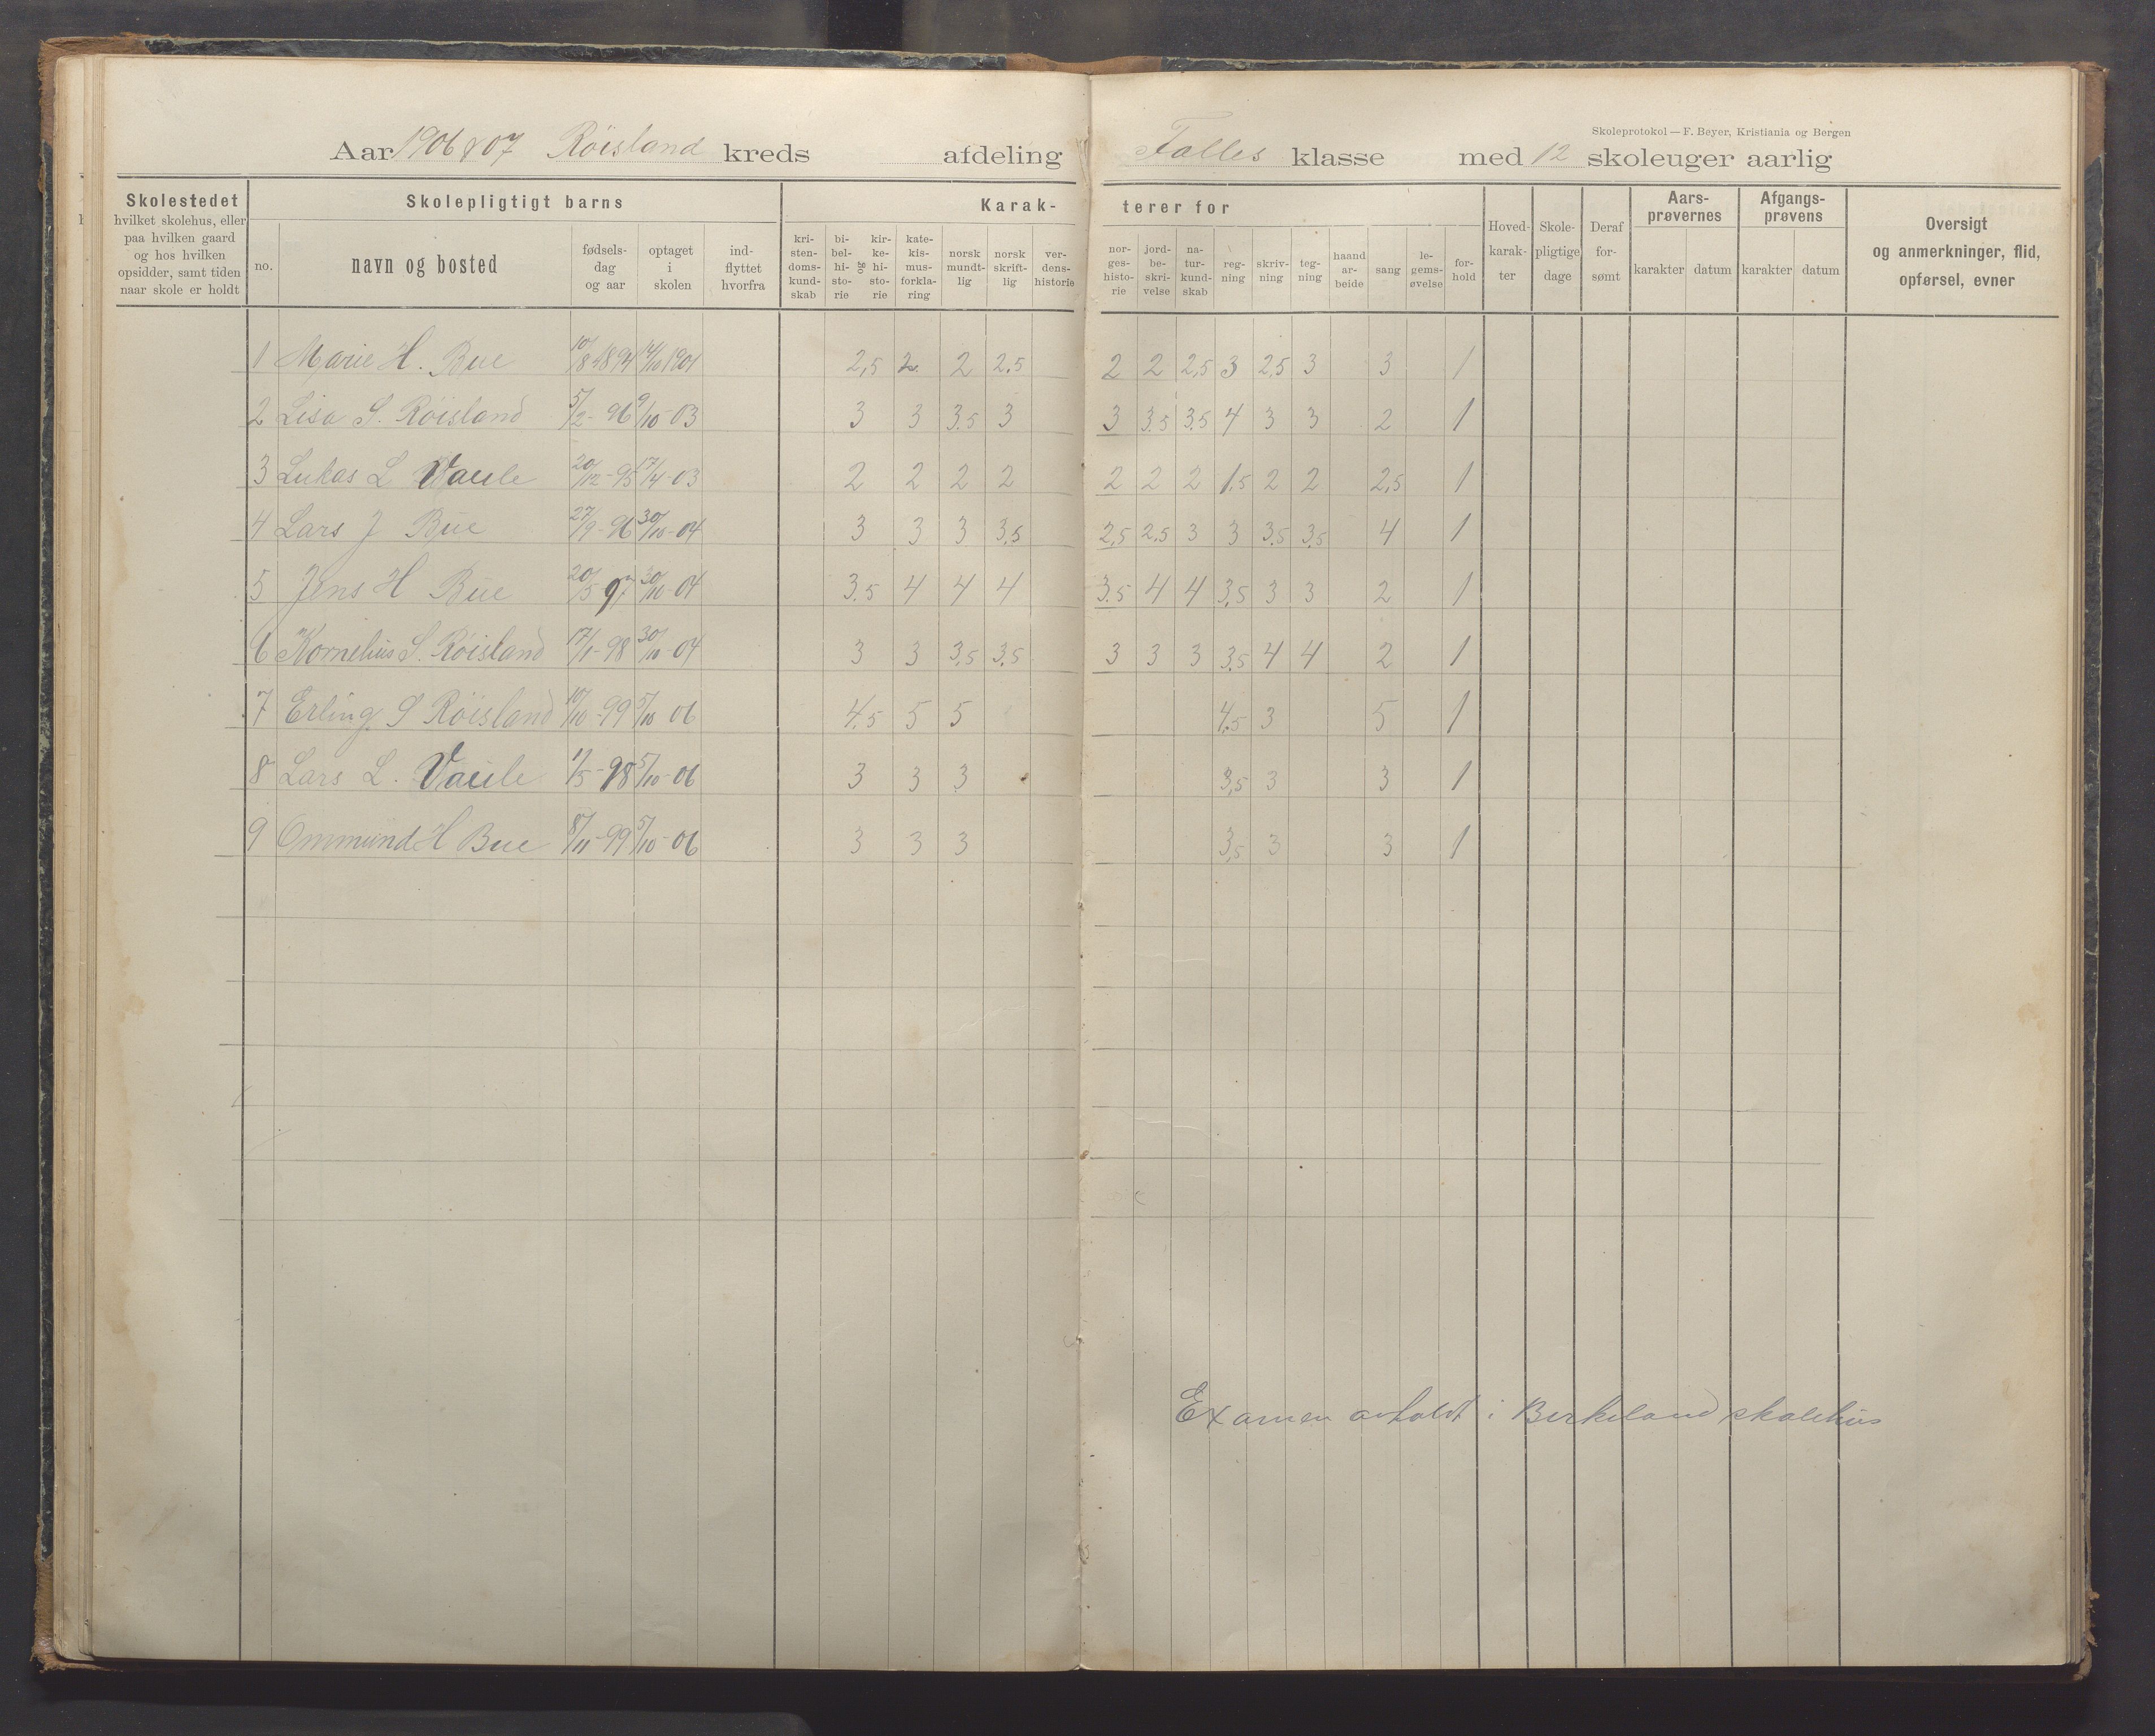 Skoleprotokol — F. Beyer, Kristiania og Bergen
Aar 1906 & 07 Røisland kreds afdeling Fælles klasse med 12 skoleuger aarlig
Skolestedet hvilket skolehus, eller paa hvilken gaard og hos hvilken opsidder, samt tiden naar skole er holdt
Skolepligtigt barns
no. navn og bosted fødsels-dag og aar optaget i skolen ind-flyttet hvorfra
Karak- terer for
kri-sten-doms-kund-skab bi-bel-hi-sto-rie og kir-ke-hi-sto-rie kate-kis-mus-forkla-ring norsk mundt-lig norsk skrift-lig ver-dens-historie
nor-ges-histo-rie jord-be-skri-velse na-tur-kund-skab reg-ning skriv-ning teg-ning haand ar-beide sang le-gems-øvelse for-hold
Hoved-karak-ter Skole-pligtige dage Deraf for-sømt
Aars-prøvernes karakter datum
Afgangs-prøvens karakter datum
Oversigt og anmerkninger, flid, opførsel, evner
1 Marie H. Bue 10/8-1894 14/10 1901 2,5 2 2 2.5 2 2 2,5 3 2,5 3 3 1
2 Lisa S. Røisland 5/2-96 9/10-03 3 3 3.5 3 3 3.5 3.5 4 3 3 2 1
3 Lukas L Vaule 20/12-95 17/4-03 2 2 2 2 2 2 2 1.5 2 2 2,5 1
4 Lars J Bue 27/9-96 30/10-04 3 3 3 3,5 2,5 2.5 3 3 3.5 3.5 4 1
5 Jens H Bue 20/5 97 30/10-04 3.5 4 4 4 3.5 4 4 3,5 3 3 2 1
6 Kornelius S. Røisland 17/1-98 30/10-04 3 3 3,5 3.5 3 3 3 3.5 4 4 2 1
7 Erling S Røisland 10/10-99 5/10 06 4.5 5 5 4.5 3 5 1
8 Lars L. Vaule 1/5-98 5/10-06 3 3 3 3,5 3 3 1
9 Ommund H Bue 8/11-99 5/10-06 3 3 3 3,5 3 3 1
Examen avholdt i Birkeland skolehus